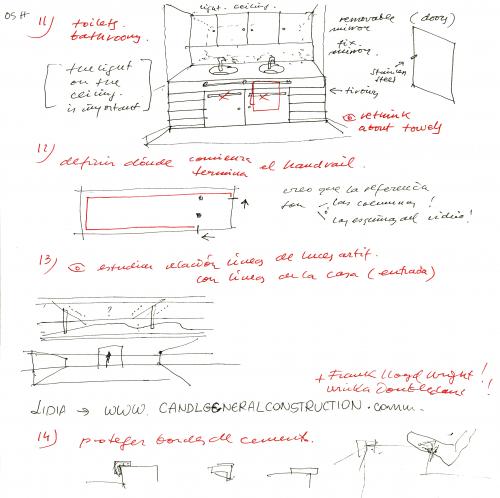 OSH
11) toilets.
bathrooms.
light. ceiling.
removable (door)
mirror
fix.
mirror.
stainless
steel
the light
on the
ceiling.
is important
← 
rethink
about towels
12) definir dónde comienza
termina el handrail.
creo que la referencia
son las columnas!
las esquinas del vidrio!
13) estudiar relación líneas de luces artif.
con líneas de la casa (entrada)
?
+ Frank Lloyd Wright!
!
LIDIA → WWW. CANDLGENERALCONSTRUCTION.comm.
14) proteger bordes de cemento.